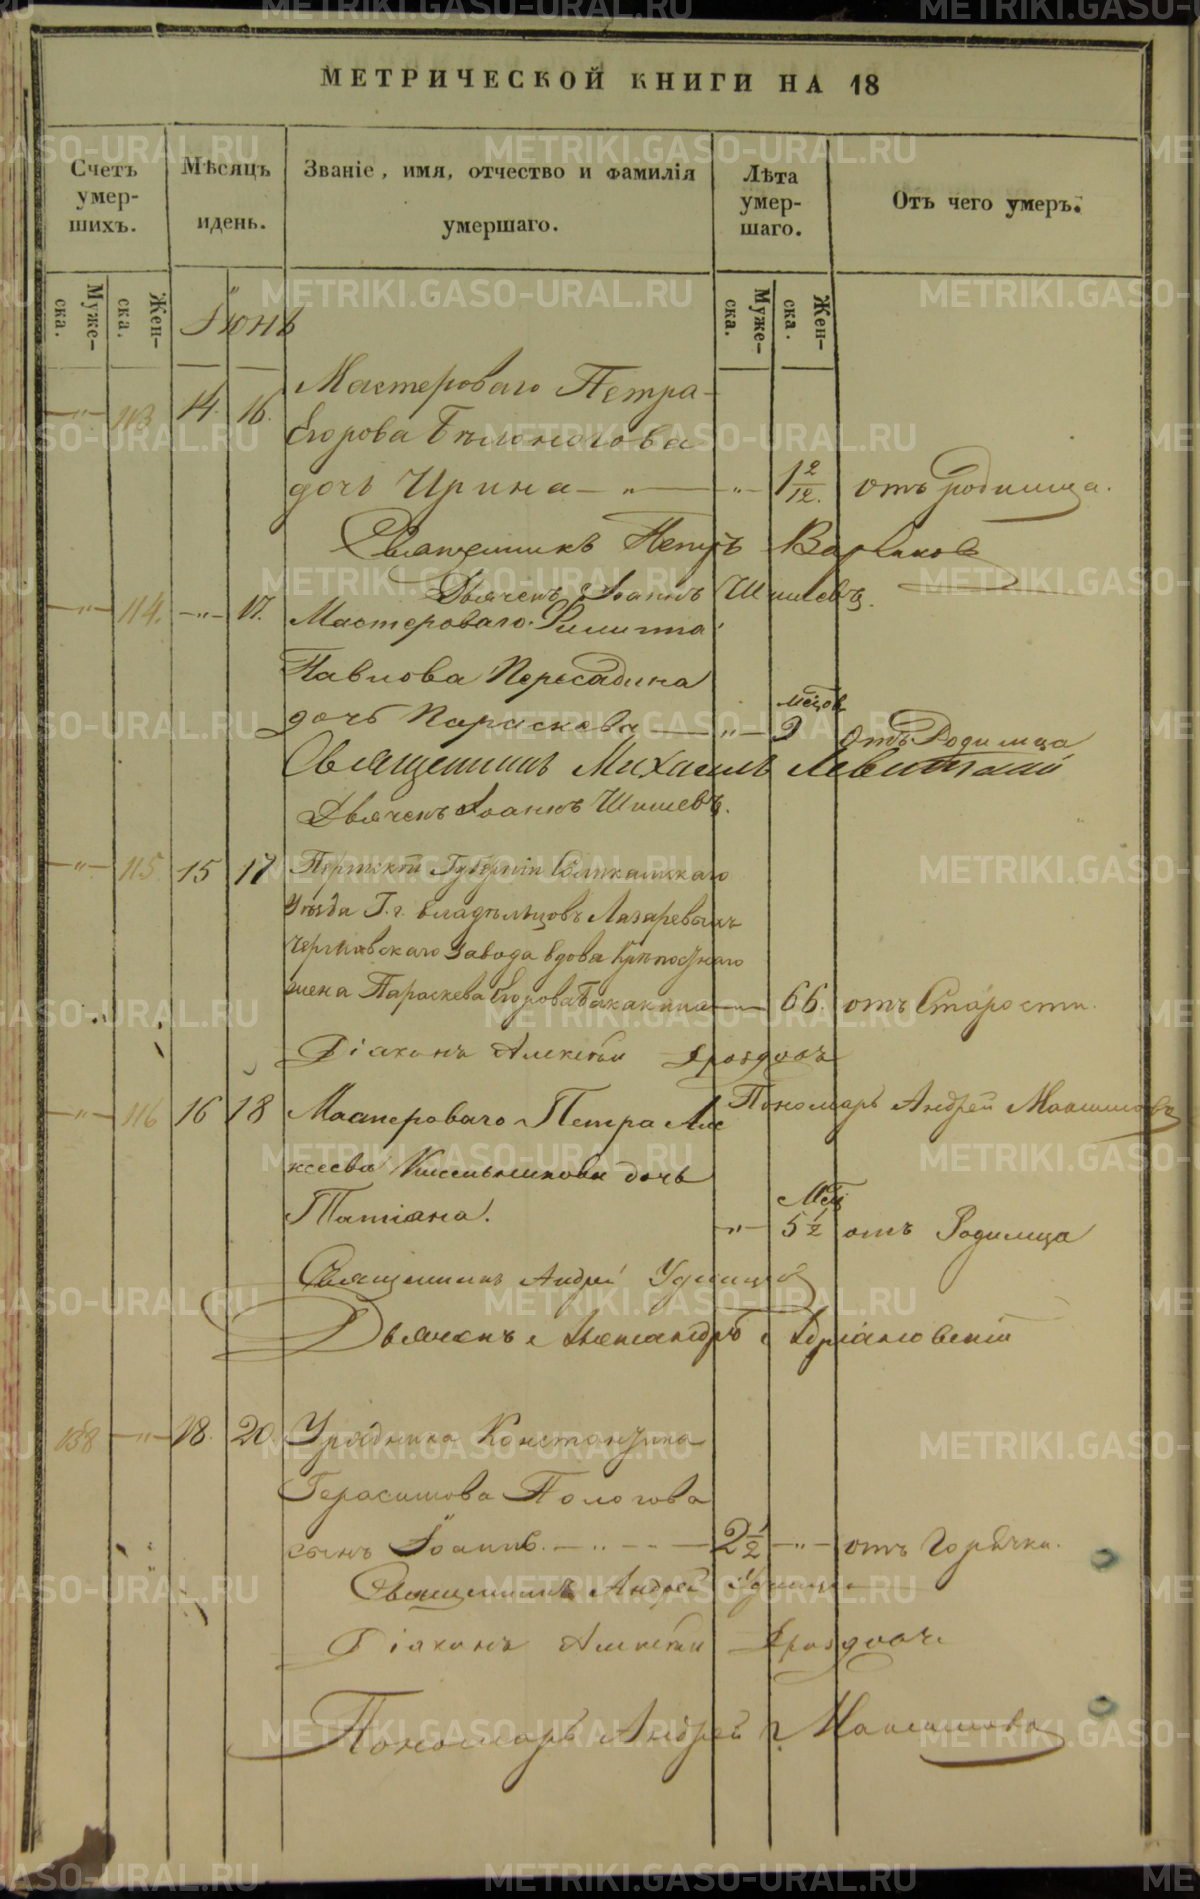 МЕТРИЧЕСКОЙ КНИГИ НА 18
Счетъ умер-шихъ.
Мѣсяцъ идень.
Званіе, имя, отчество и фамилія умершаго.
Лѣта умер-шаго.
Отъ чего умеръ.
Муже-ска. Жен-ска.
Муже-ска. Жен-ска.
Іюнь
Мастероваго Петра
—„— 113 14. 16. Егорова Бѣлоногова
дочь Ирина — „ — „ — 1 2/12. отъ родимца.
Священникъ Петръ
Дьячекъ Іоаннъ Шишевъ.
—„— 114. —„— 17. Мастероваго Филиппа
Павлова Пересадина
дочь Параскева — „ — мѣсцов 9 отъ Родимца
Священникъ Михаилъ Левитскій
Дьячекъ Іоаннъ Шишевъ.
—„— 115. 15 17 Пермской Губерніи Соликамскаго
Уѣзда Г. г. владѣльцовъ Лазаревыхъ
Чермазскаго Завода вдова Крѣпостнаго
жена Параскева Егорова — „ — 66. отъ Старости.
Діаконъ Алексѣй Дроздовъ
Пономарь Андрей Максимовъ
—„— 116 16 18 Мастероваго Петра Але
ксеева дочь
Татіана. — „ — Мѣс 5 1/2 отъ Родимца
Священникъ Андрей Удинцевъ
Дьячекъ Александръ Адріановскій
158 —„— 18. 20. Урядника Константина
Герасимова Пологова
сынъ Іоаннъ. — „ — 2 1/2 — „ — отъ Горячки.
Священникъ Андрей Удинцевъ
Діаконъ Алексѣй Дроздовъ
Пономарь Андрей Максимовъ
METRIKI.GASO-URAL.RU